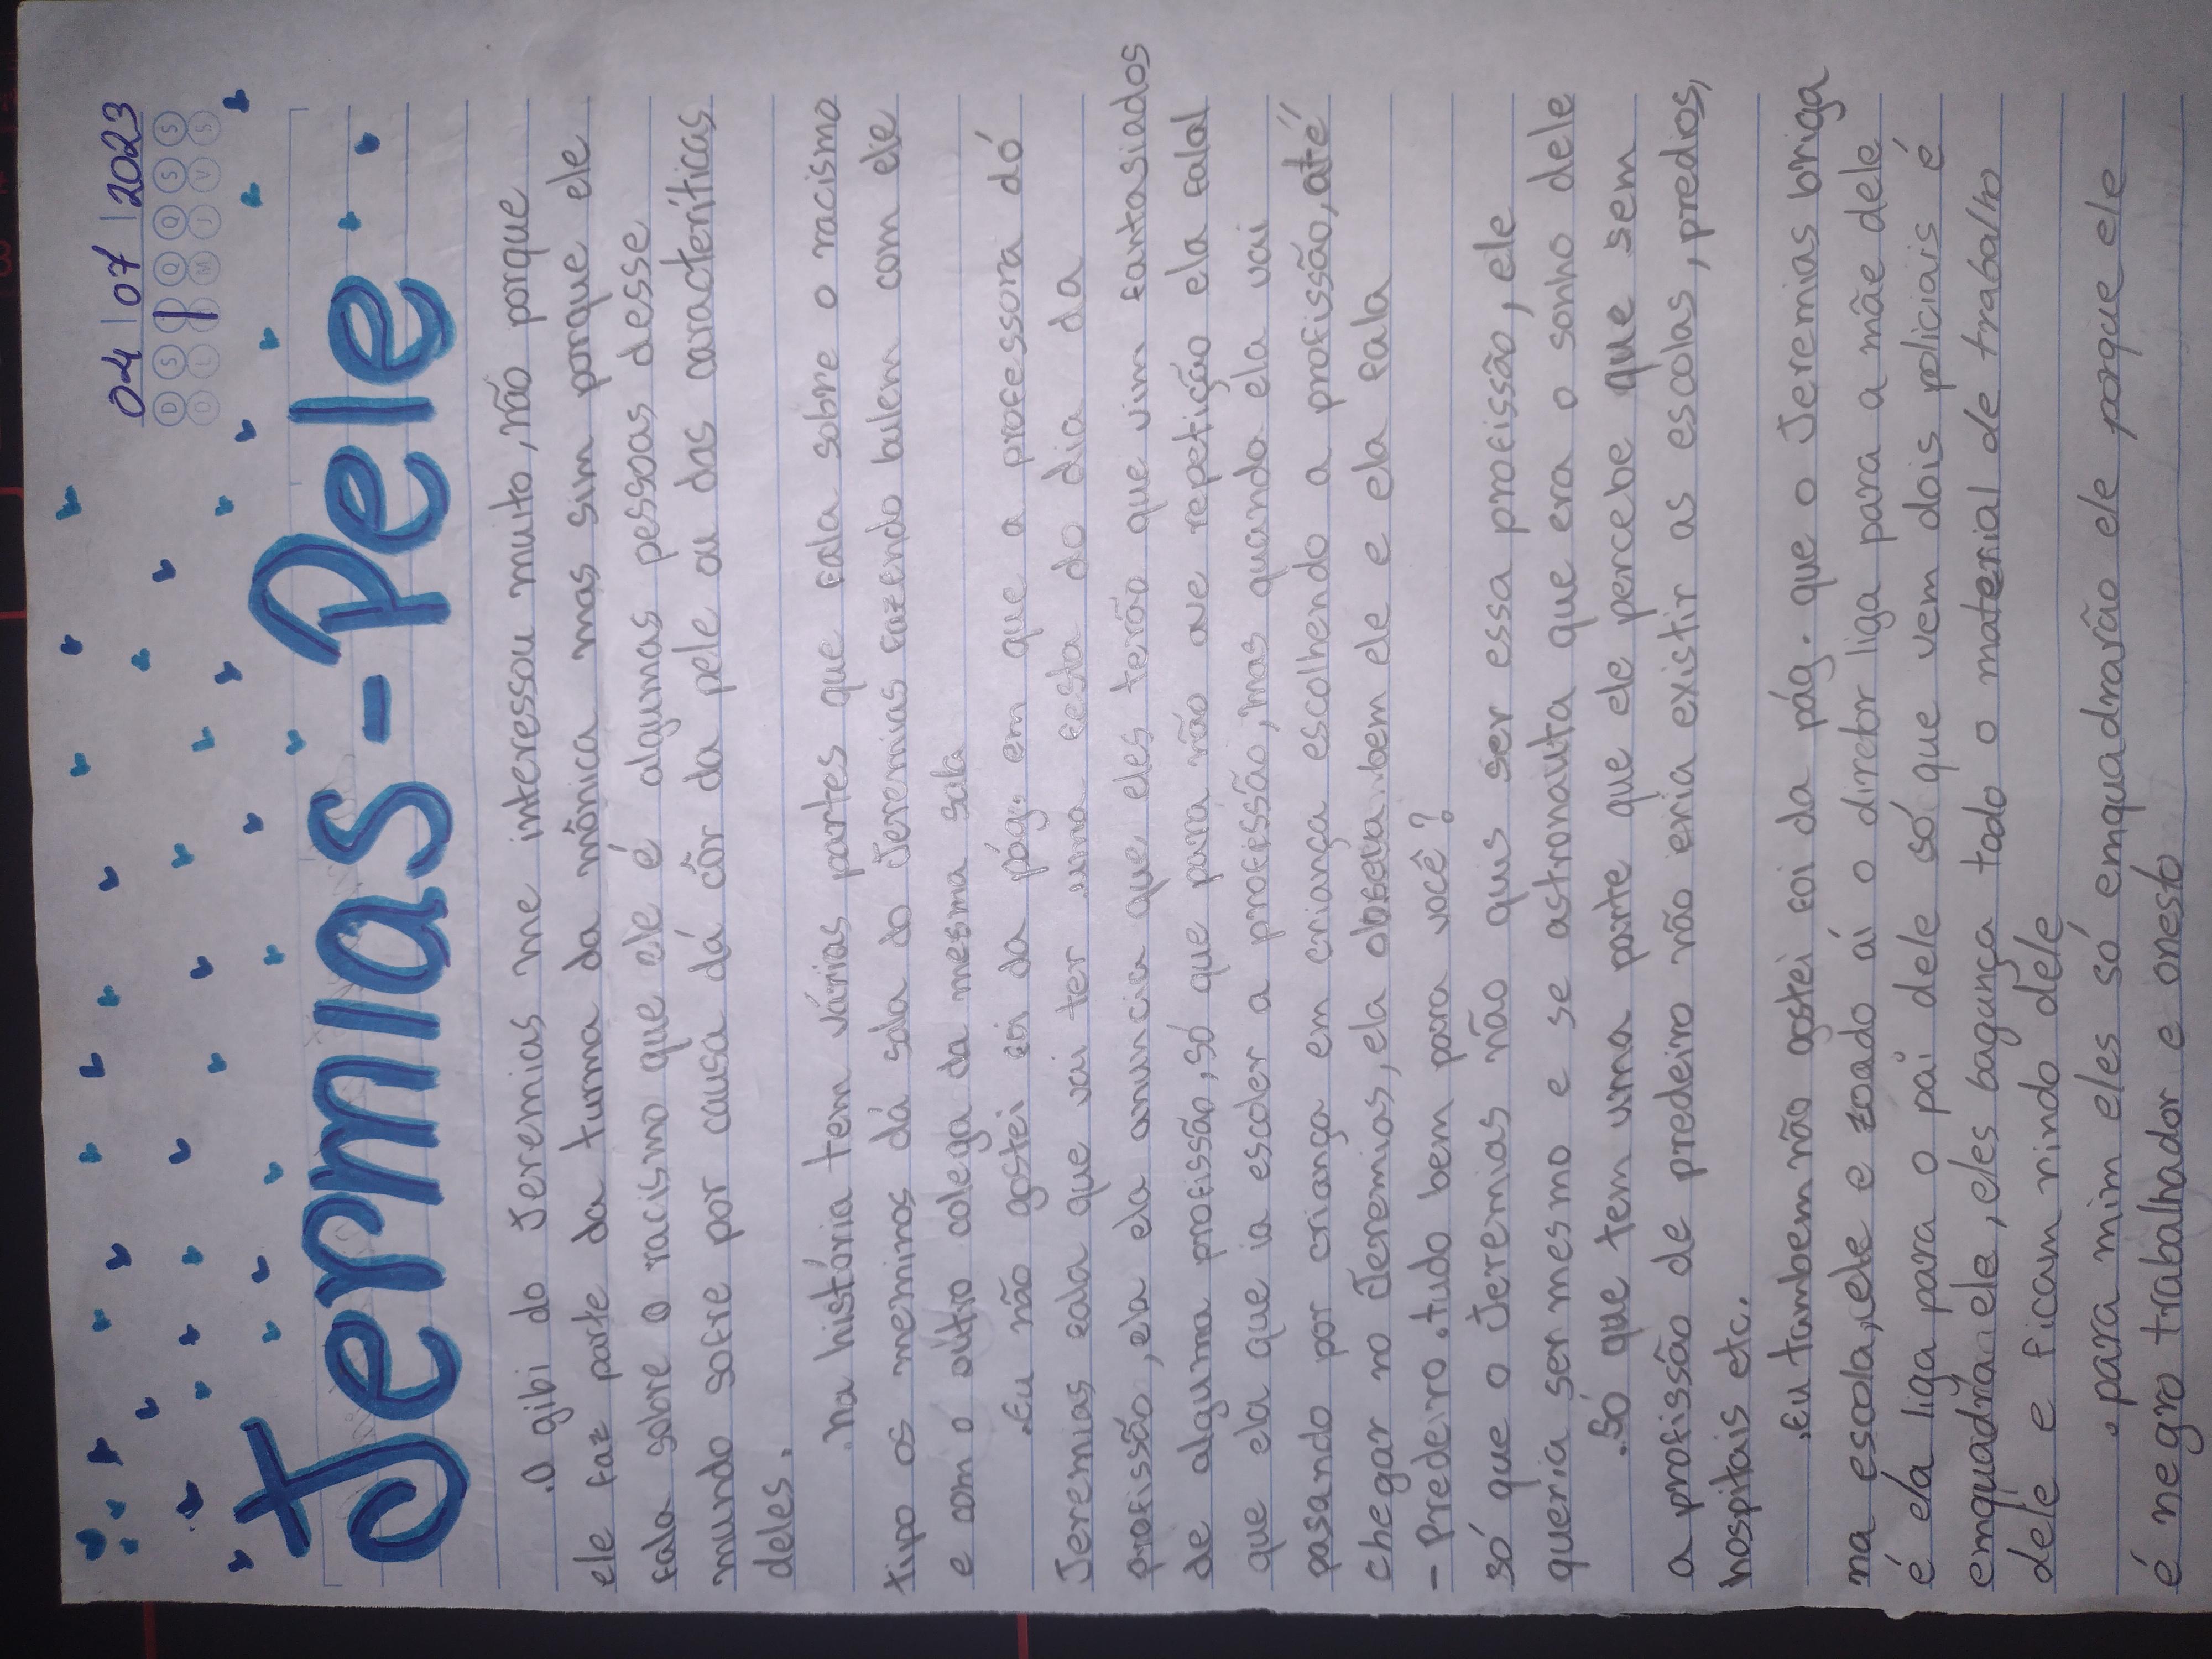 04 / 07 / 2023
D S T Q Q S S
D L M M J V S
Jermias - Pele.
.O gibi do Jeremias me interessou muito, não porque
ele faz parte da turma da mônica mas sim porque ele
fala sobre o racismo que ele é algumas pessoas desse
mundo sofre por causa dá côr da pele ou das caracteríticas
deles.
.na história tem várias partes que fala sobre o racismo
tipo os meninos dá sala do Jeremias fazendo bulem com ele
e com o outro colega da mesma sala
.Eu não gostei foi da pág. em que a professora dó
Jeremias fala que vai ter uma festa do dia da
profissão, ela anuncia que eles terão que vim fantasiados
de alguma profissão, só que para não ave repetição ela falol
que ela que ia escoler a profissão, mas quando ela vai
pasando por criança em criança escolhendo a profissão, até
chegar no Jeremias, ela obseva bem ele e ela fala
- Predeiro. tudo bem para você?
só que o Jeremias não quis ser essa profissão, ele
queria ser mesmo e se astronauta que era o sonho dele
.Só que tem uma parte que ele percebe que sem
a profissão de predeiro não eria existir as escolas, predios,
hospitais etc.
.Eu tambem não gostei foi da pág. que o Jeremias briga
na escola, ele e zoado aí o diretor liga para a mãe dele
é ela liga para o pai dele só que vem dois policiais é
emquadra ele, eles bagunça todo o material de trabalho
dele e ficam rindo dele
.para mim eles só emquadrarão ele porque ele
é negro trabalhador e onesto